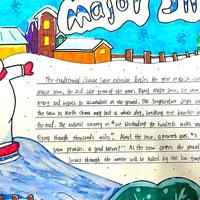 Major Sn
The traditional Chinese lunar calendar divides the year into 24 solar
Major Snow, the 21st solar term of the year. During Major Snow, the snow
heavy and begins to accumulate on the ground. The temperature drops
the snow in North China may last a whole day, breaking tree branches
the road. The natural scenery is "ice blockaded for hundred miles and
flying through thousands miles". About the snow, a proverb goes, "A
snow promises a good harvest". As the snow covers the ground
living through the winter will be killed by the low temp